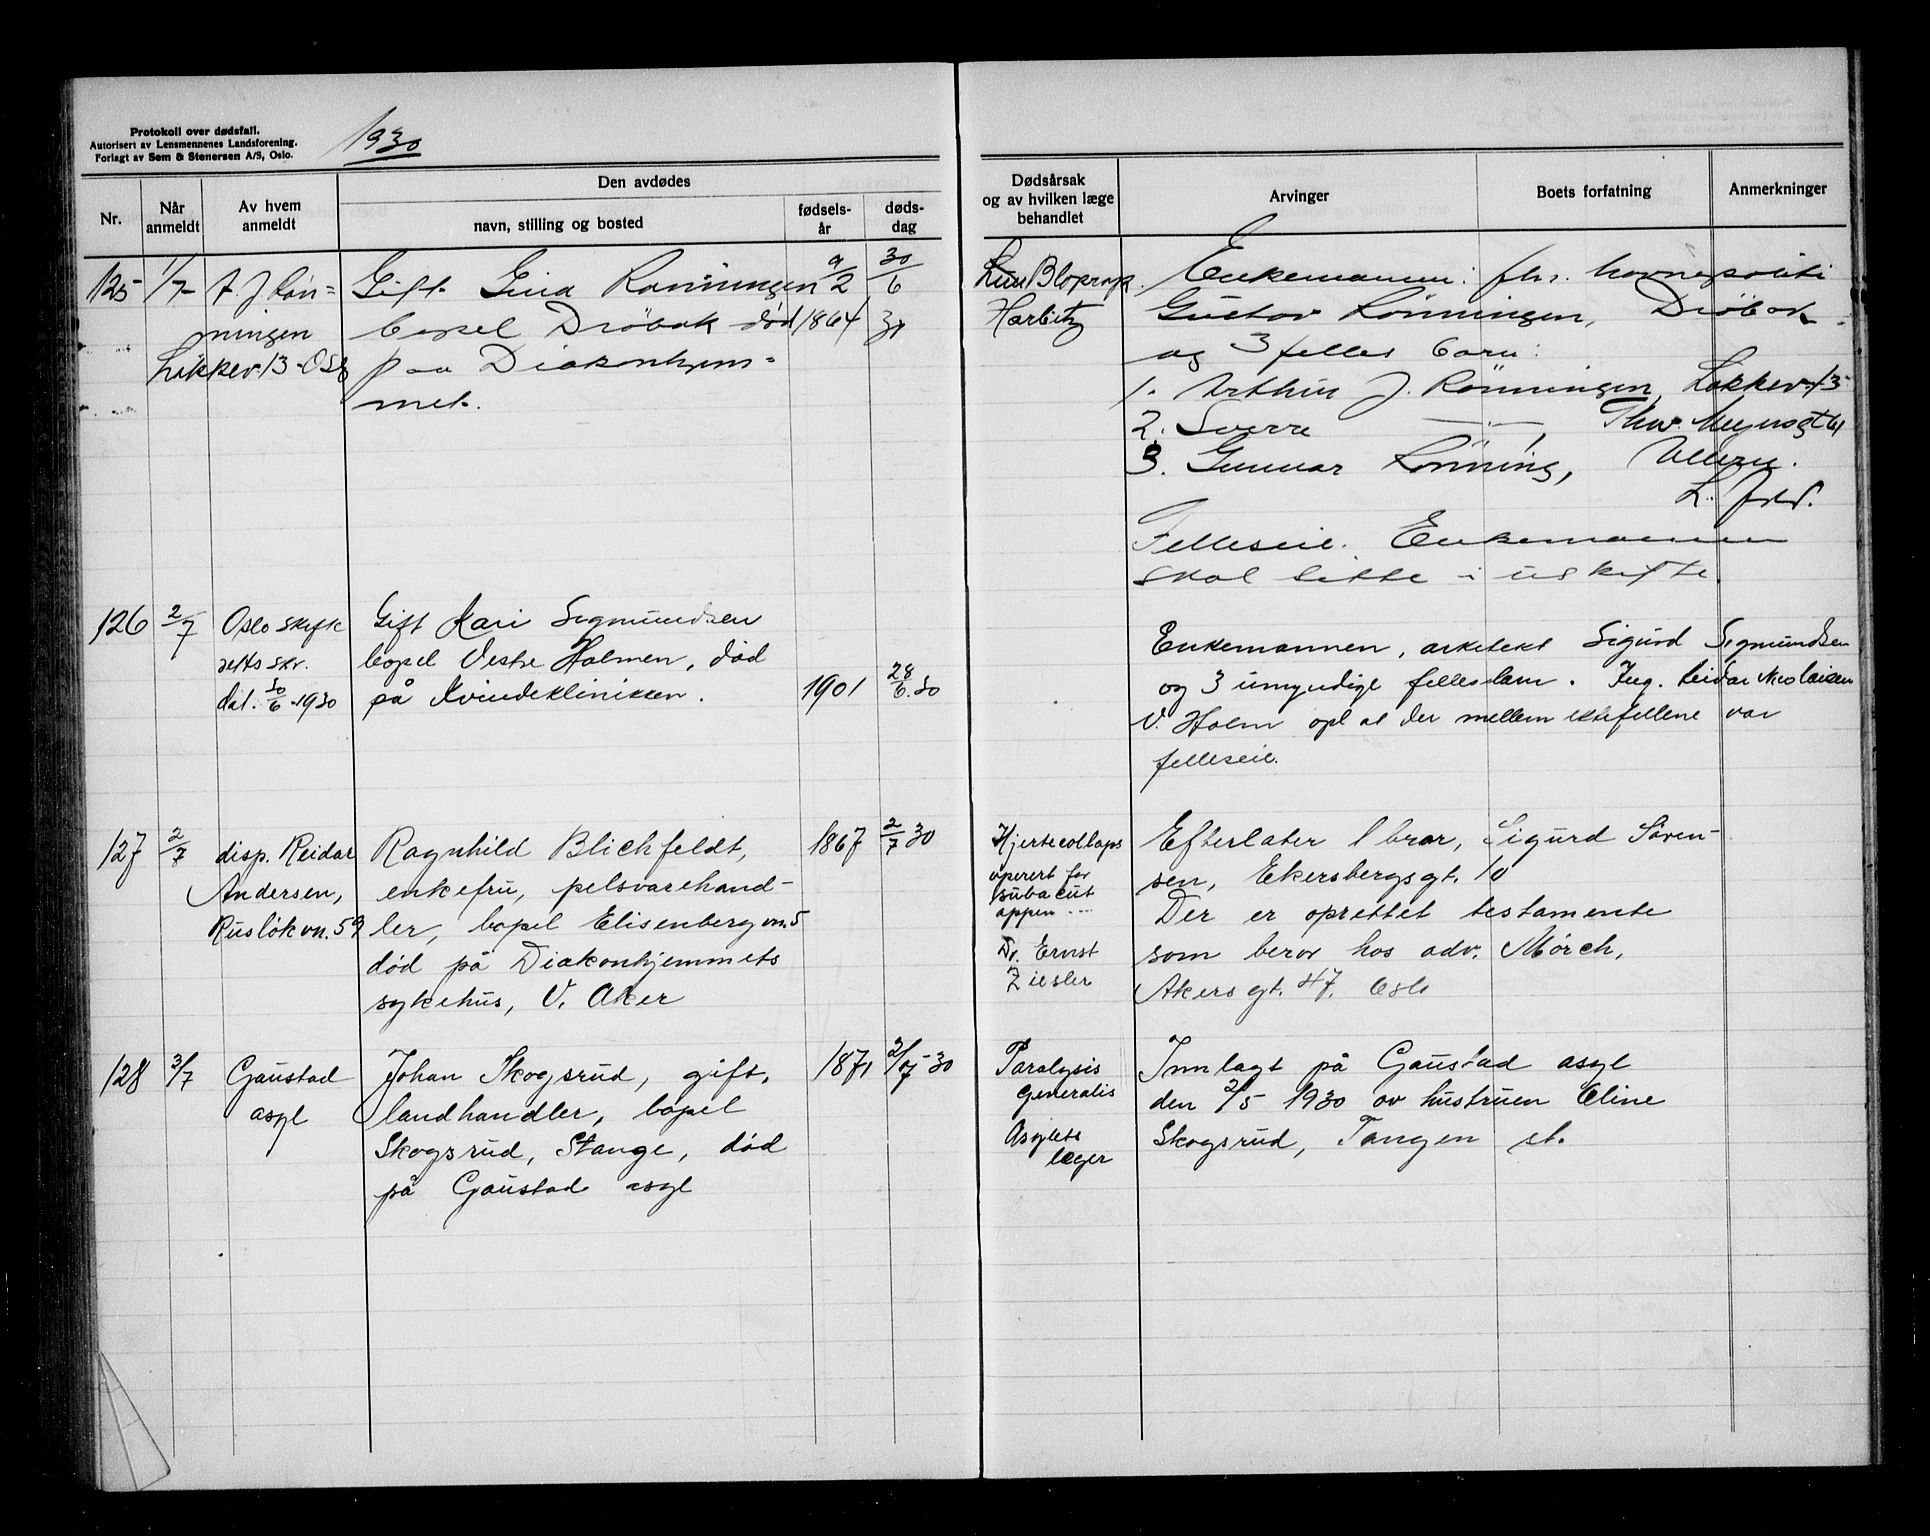 Protokoll over dødsfall.
Autorisert av Lensmennenes Landsforening.
Forlagt av Sem & Stenersen A/S, Oslo.
1930
Nr.
Når anmeldt
Av hvem anmeldt
Den avdødes
navn, stilling og bosted
fødsels-år
døds-dag
Dødsårsak og av hvilken læge behandlet
Arvinger
Boets forfatning
Anmerkninger
125
1/7
A. J. Røn-
ningen
Løkkev. 13 Oslo
Gift Gina Rønningen
bopel Drøbak død
paa Diakonhjem-
met.
9/2
1864
30/6
30
Harbitz
Enkemannen: fhv. havnepoliti
Gustav Rønningen, Drøbak.
og 3 felles barn:
1. Arthur J. Rønningen, Løkkev. 13
2. Sverre — " —, Thv. Meyersgt 61
3. Gunnar Rønning, Ullern.
L. fred.
Felleseie. Enkemannen
skal sitte i uskifte.
126
2/7
Oslo skifte
retts skr.
dat. 30/6 1930
Gift Kari Sigmundsen
bopel Vestre Holmen, død
på Kvindeklinikken.
1901
28/6 30
Enkemannen, arkitekt Sigurd Sigmundsen
og 3 umyndige fellesbarn. Ing. Reidar Nicolaisen
V. Holm opl at der mellem ektefellene var
felleseie.
127
2/7
disp. Reidar
Andersen,
Rusløkvn. 59
Ragnhild Blichfeldt,
enkefru, pelsvarehand-
ler, bopel Elisenbergvn. 5
død på Diakonhjemmets
sykehus, V. Aker
1867
2/7 30
Hjertecollaps
operert for
subacut
appen ....
Dr. Ernst
Ziesler
Efterlater 1 bror, Sigurd Søren-
sen, Ekersbergsgt. 10
Der er oprettet testamente
som beror hos adv. Mørch,
Akersgt. 47. Oslo
128
3/7
Gaustad
asyl
Johan Skogsrud, gift,
landhandler, bopel
Skogsrud, Stange, død
på Gaustad asyl
1871
2/7 30
Paralysis
generalis
Asylets
læger
Innlagt på Gaustad asyl
den 2/5 1930 av hustruen Eline
Skogsrud, Tangen st.